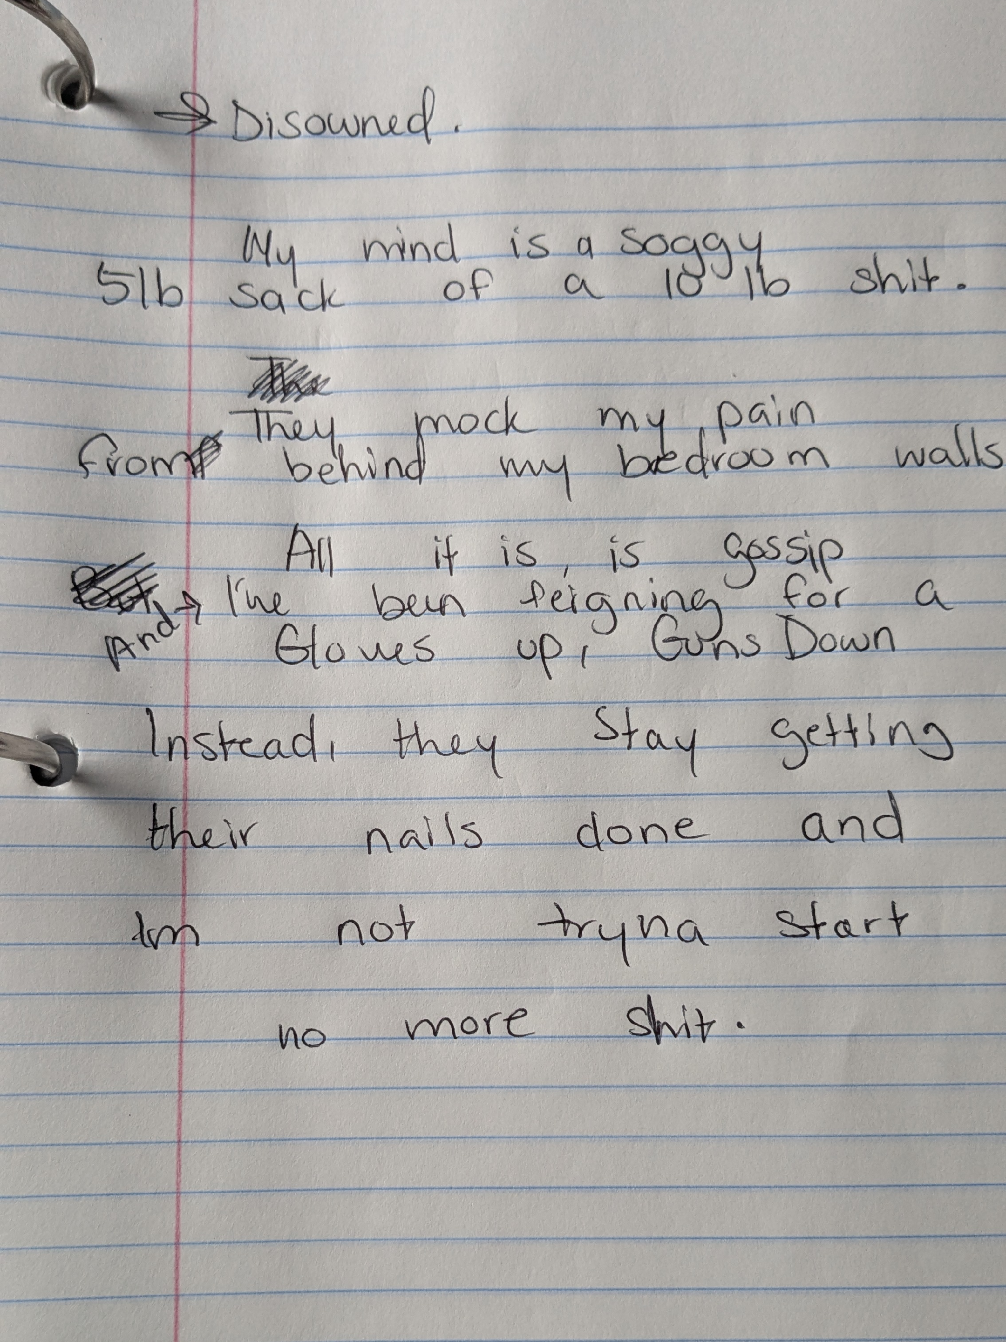 → Disowned.
My mind is a soggy
5lb sack of a 10 lb shit.
They mock my pain
from behind my bedroom walls
All it is, is gossip
And → I've been feigning for a
Gloves up, Guns Down
Instead, they stay getting
their nails done and
Im not tryna start
no more shit.